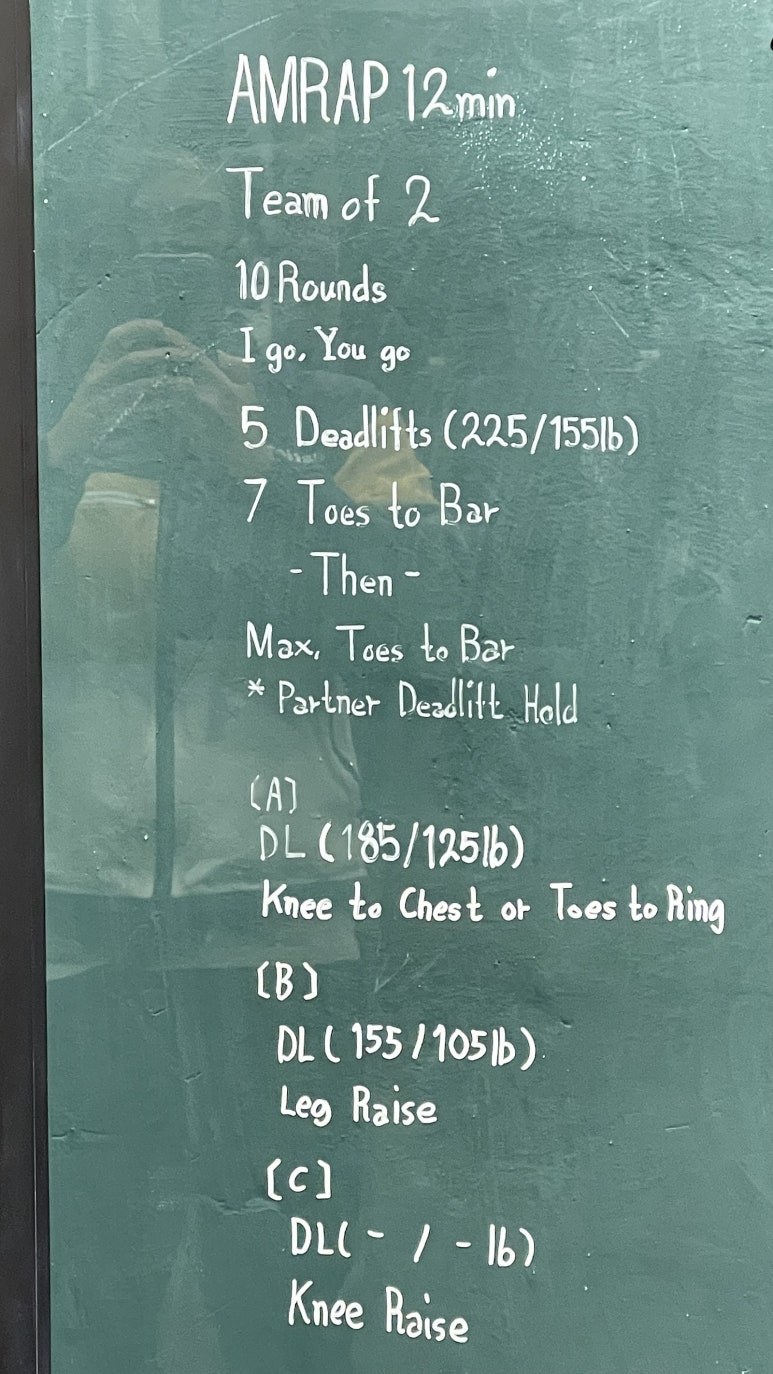 AMRAP 12min
Team of 2
10 Rounds
I go, You go
5 Deadlifts (225/155lb)
7 Toes to Bar
- Then -
Max, Toes to Bar
* Partner Deadlift Hold
[A]
DL (185/125lb)
Knee to Chest or Toes to Ring
[B]
DL (155/105lb)
Leg Raise
[C]
DL( - / - lb)
Knee Raise